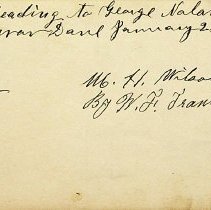 leading to George Nolan
Dave January 2
M. H. Wilson
By W. F. Fran